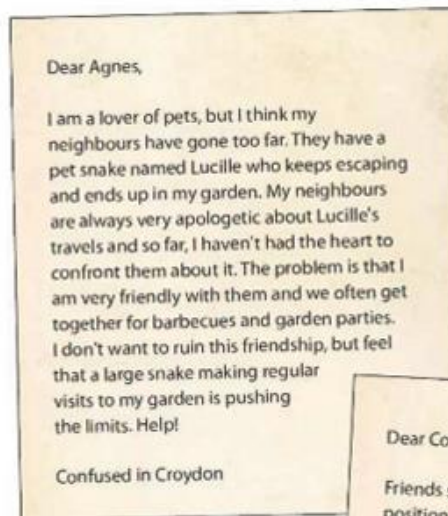 Dear Agnes,
I am a lover of pets, but I think my
neighbours have gone too far. They have a
pet snake named Lucille who keeps escaping
and ends up in my garden. My neighbours
are always very apologetic about Lucille's
travels and so far, I haven't had the heart to
confront them about it. The problem is that I
am very friendly with them and we often get
together for barbecues and garden parties.
I don't want to ruin this friendship, but feel
that a large snake making regular
visits to my garden is pushing
the limits. Help!
Confused in Croydon
Dear Co
Friends
position